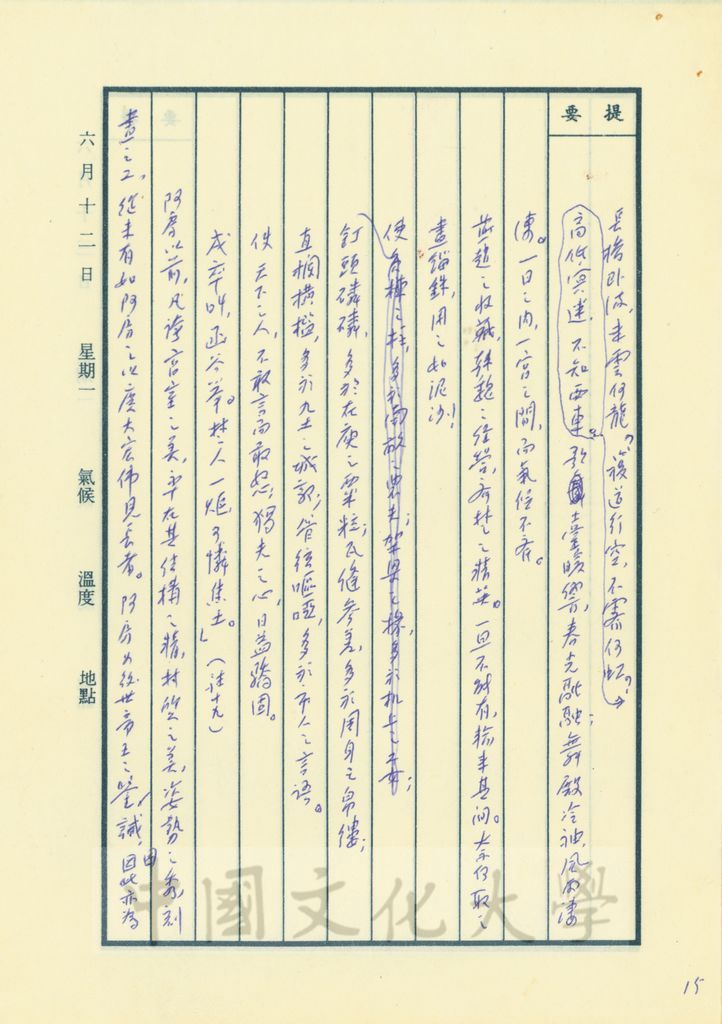 提要
長橋臥波,未雲何龍?複道行空,不霽何虹?
高低冥迷,不知西東。歌臺暖響,春光融融;舞殿冷袖,風雨淒
淒。一日之內,一宮之間,而氣候不齊。
燕趙之收藏,韓魏之經營,齊楚之精英。一旦不能有,輸來其間。大命何取之
盡錙銖,用之如泥沙!
使負棟之柱,多於南畝之農夫;架梁之椽,多於機上之工女;
釘頭磷磷,多於在庾之粟粒;瓦縫參差,多於周身之帛縷;
直欄橫檻,多於九土之城郭;管絃嘔啞,多於市人之言語。
使天下之人,不敢言而敢怒;獨夫之心,日益驕固。
戍卒叫,函谷舉。楚人一炬,可憐焦土。」(註十九)
阿房以前,凡誇宮室之美,率在其結構之精,材質之美,姿勢之秀,刻
畫之工,從未有如阿房之以廣大宏偉見長者。阿房如後世帝王之鑒誡,因此亦為
六月十二日 星期一 氣候 溫度 地點
中國文化大學
15